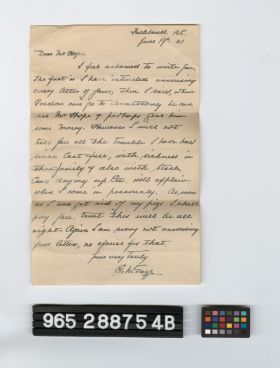 June 19th 41
Dear Mr Hope
I feel ashamed to write you,
The fact is I have intended answering
every letter of yours, then I said, when
can go to Armstrong he can
see Mr Hope & perhaps give him
some money. However I will not
tell you all the trouble I have had
since last fall, with sickness in
the family & also with stock,
Cows drying up Etc. will explain
when I come in personally. As soon
as I can get rid of my pigs I shall
pay you, trust this will be all
right. Again I am sorry not answering
your letter, no excuse for that
Yours very truly
965 288754B